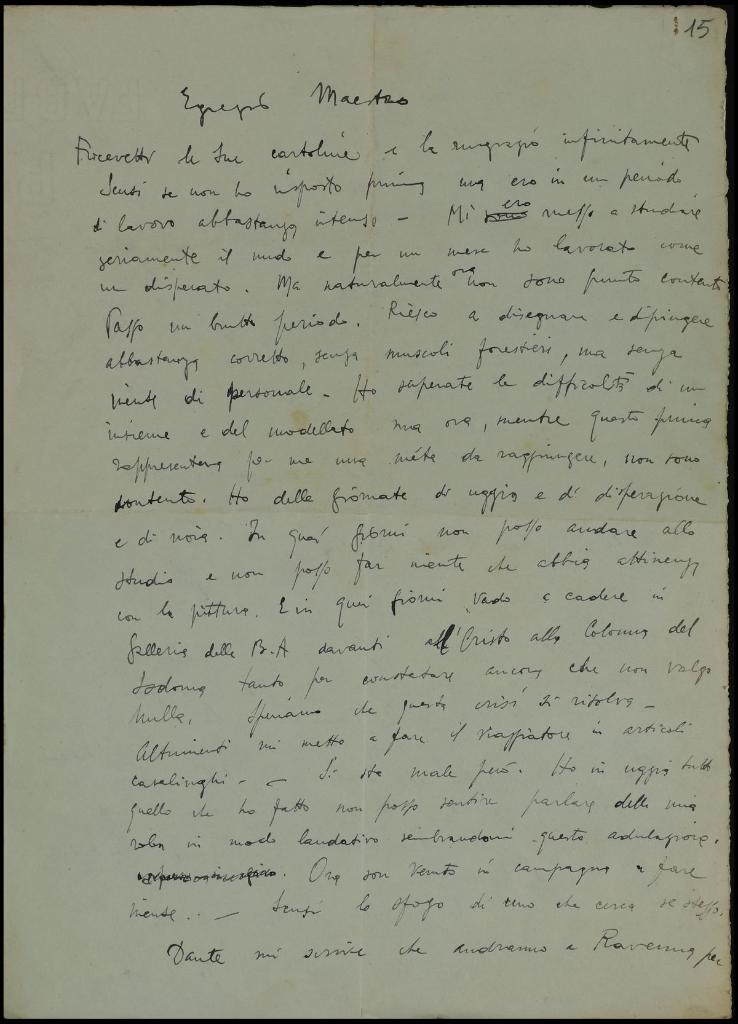 15
Egregio Maestro
Ricevetti le Sue cartoline e la ringrazio infinitamente
Scusi se non ho risposto prima ma ero in un periodo
di lavoro abbastanza intenso - Mi ero messo a studiare
seriamente il nudo e per un mese ho lavorato come
un disperato. Ma naturalmente ora non sono punto contento
Passo un brutto periodo. Riesco a disegnare e dipingere
abbastanza corretto, senza muscoli forestieri, ma senza
niente di personale - Ho superate le difficoltà di un
insieme e del modellato ma ora, mentre questo prima
rappresentava per me una mèta da raggiungere, non sono
contento. Ho delle giornate di uggia e di disperazione
e di noia. In quei giorni non posso andare allo
studio e non posso far niente che abbia attinenza
con la pittura. E in quei giorni vado a cadere in
Galleria delle B.A davanti all' Cristo alla Colonna del
Sodoma tanto per constatare ancora che non valgo
nulla. Speriamo che questa crisi si risolva -
Altrimenti mi metto a fare il viaggiatore in articoli
casalinghi - - Si sta male però. Ho in uggia tutto
quello che ho fatto non posso sentire parlare della mia
roba in modo laudativo sembrandomi questa adulazione.
Ora son venuto in campagna a fare
niente.. - Scusi lo sfogo di uno che cerca se stesso.
Dante mi scrive che andranno a Ravenna per